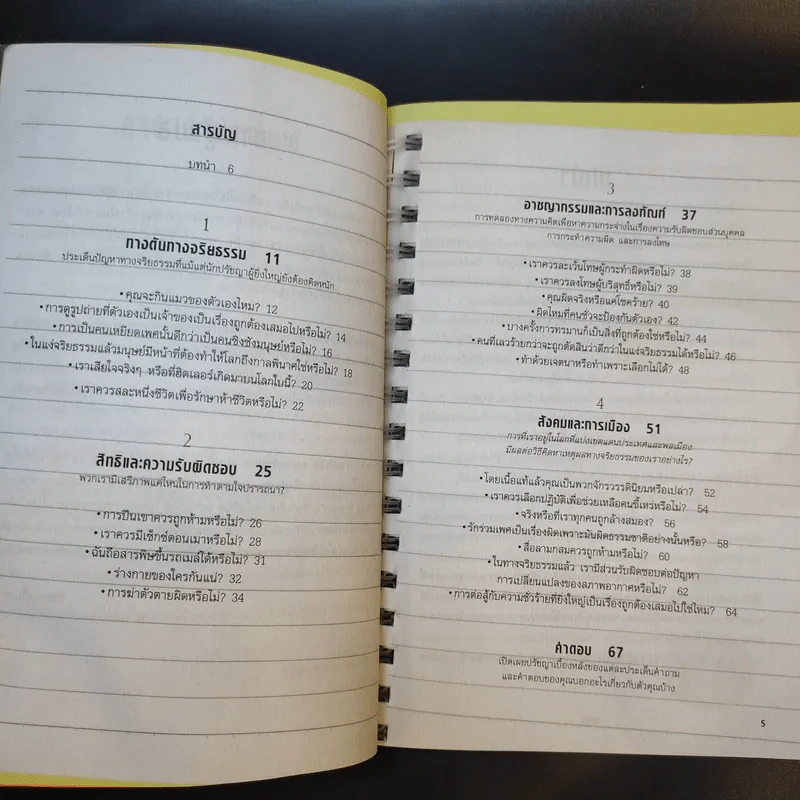 สารบัญ
บทนำ 6
1
ทางตันทางจริยธรรม 11
ประเด็นปัญหาทางจริยธรรมที่แม้แต่นักปรัชญาผู้ยิ่งใหญ่ยังต้องคิดหนัก
• คุณจะกินแมวของตัวเองไหม? 12
• การดูรูปถ่ายที่ตัวเองเป็นเจ้าของเป็นเรื่องถูกต้องเสมอไปหรือไม่? 14
• การเป็นคนเหยียดเพศนั้นดีกว่าเป็นคนชิงชังมนุษย์หรือไม่? 16
• ในแง่จริยธรรมแล้วมนุษย์มีหน้าที่ต้องทำให้โลกถึงกาลพินาศใช่หรือไม่? 18
• เราเสียใจจริงๆ หรือที่ฮิตเลอร์เกิดมาบนโลกใบนี้? 20
• เราควรสละหนึ่งชีวิตเพื่อรักษาห้าชีวิตหรือไม่? 22
2
สิทธิและความรับผิดชอบ 25
พวกเรามีเสรีภาพแค่ไหนในการทำตามใจปรารถนา?
• การปีนเขาควรถูกห้ามหรือไม่? 26
• เราควรมีเซ็กซ์ตอนเมาหรือไม่? 28
• ฉันถือสารพิษขึ้นรถเมล์ได้หรือไม่? 31
• ร่างกายของใครกันแน่? 32
• การฆ่าตัวตายผิดหรือไม่? 34
3
อาชญากรรมและการลงทัณฑ์ 37
การทดลองทางความคิดเพื่อหาความกระจ่างในเรื่องความรับผิดชอบส่วนบุคคล
การกระทำความผิด และการลงโทษ
• เราควรละเว้นโทษผู้กระทำผิดหรือไม่? 38
• เราควรลงโทษผู้บริสุทธิ์หรือไม่? 39
• คุณผิดจริงหรือแค่โชคร้าย? 40
• ผิดไหมที่คนชั่วจะป้องกันตัวเอง? 42
• บางครั้งการทรมานก็เป็นสิ่งที่ถูกต้องใช่หรือไม่? 44
• คนที่เลวร้ายกว่าจะถูกตัดสินว่าดีกว่าในแง่จริยธรรมได้หรือไม่? 46
• ทำด้วยเจตนาหรือทำเพราะเลือกไม่ได้? 48
4
สังคมและการเมือง 51
การที่เราอยู่ในโลกที่แบ่งเขตแดนประเทศและพลเมือง
มีผลต่อวิธีคิดหาเหตุผลทางจริยธรรมของเราอย่างไร?
• โดยเนื้อแท้แล้วคุณเป็นพวกจักรวรรดินิยมหรือเปล่า? 52
• เราควรเลือกปฏิบัติเพื่อช่วยเหลือคนขี้เหร่หรือไม่? 54
• จริงหรือที่เราทุกคนถูกล้างสมอง? 56
• รักร่วมเพศเป็นเรื่องผิดเพราะมันผิดธรรมชาติอย่างนั้นหรือ? 58
• สื่อลามกสมควรถูกห้ามหรือไม่? 60
• ในทางจริยธรรมแล้ว เรามีส่วนรับผิดชอบต่อปัญหา
การเปลี่ยนแปลงของสภาพอากาศหรือไม่? 62
• การต่อสู้กับความชั่วร้ายที่ยิ่งใหญ่เป็นเรื่องถูกต้องเสมอไปใช่ไหม? 64
คำตอบ 67
เปิดเผยปรัชญาเบื้องหลังของแต่ละประเด็นคำถาม
และคำตอบของคุณบอกอะไรเกี่ยวกับตัวคุณบ้าง
5